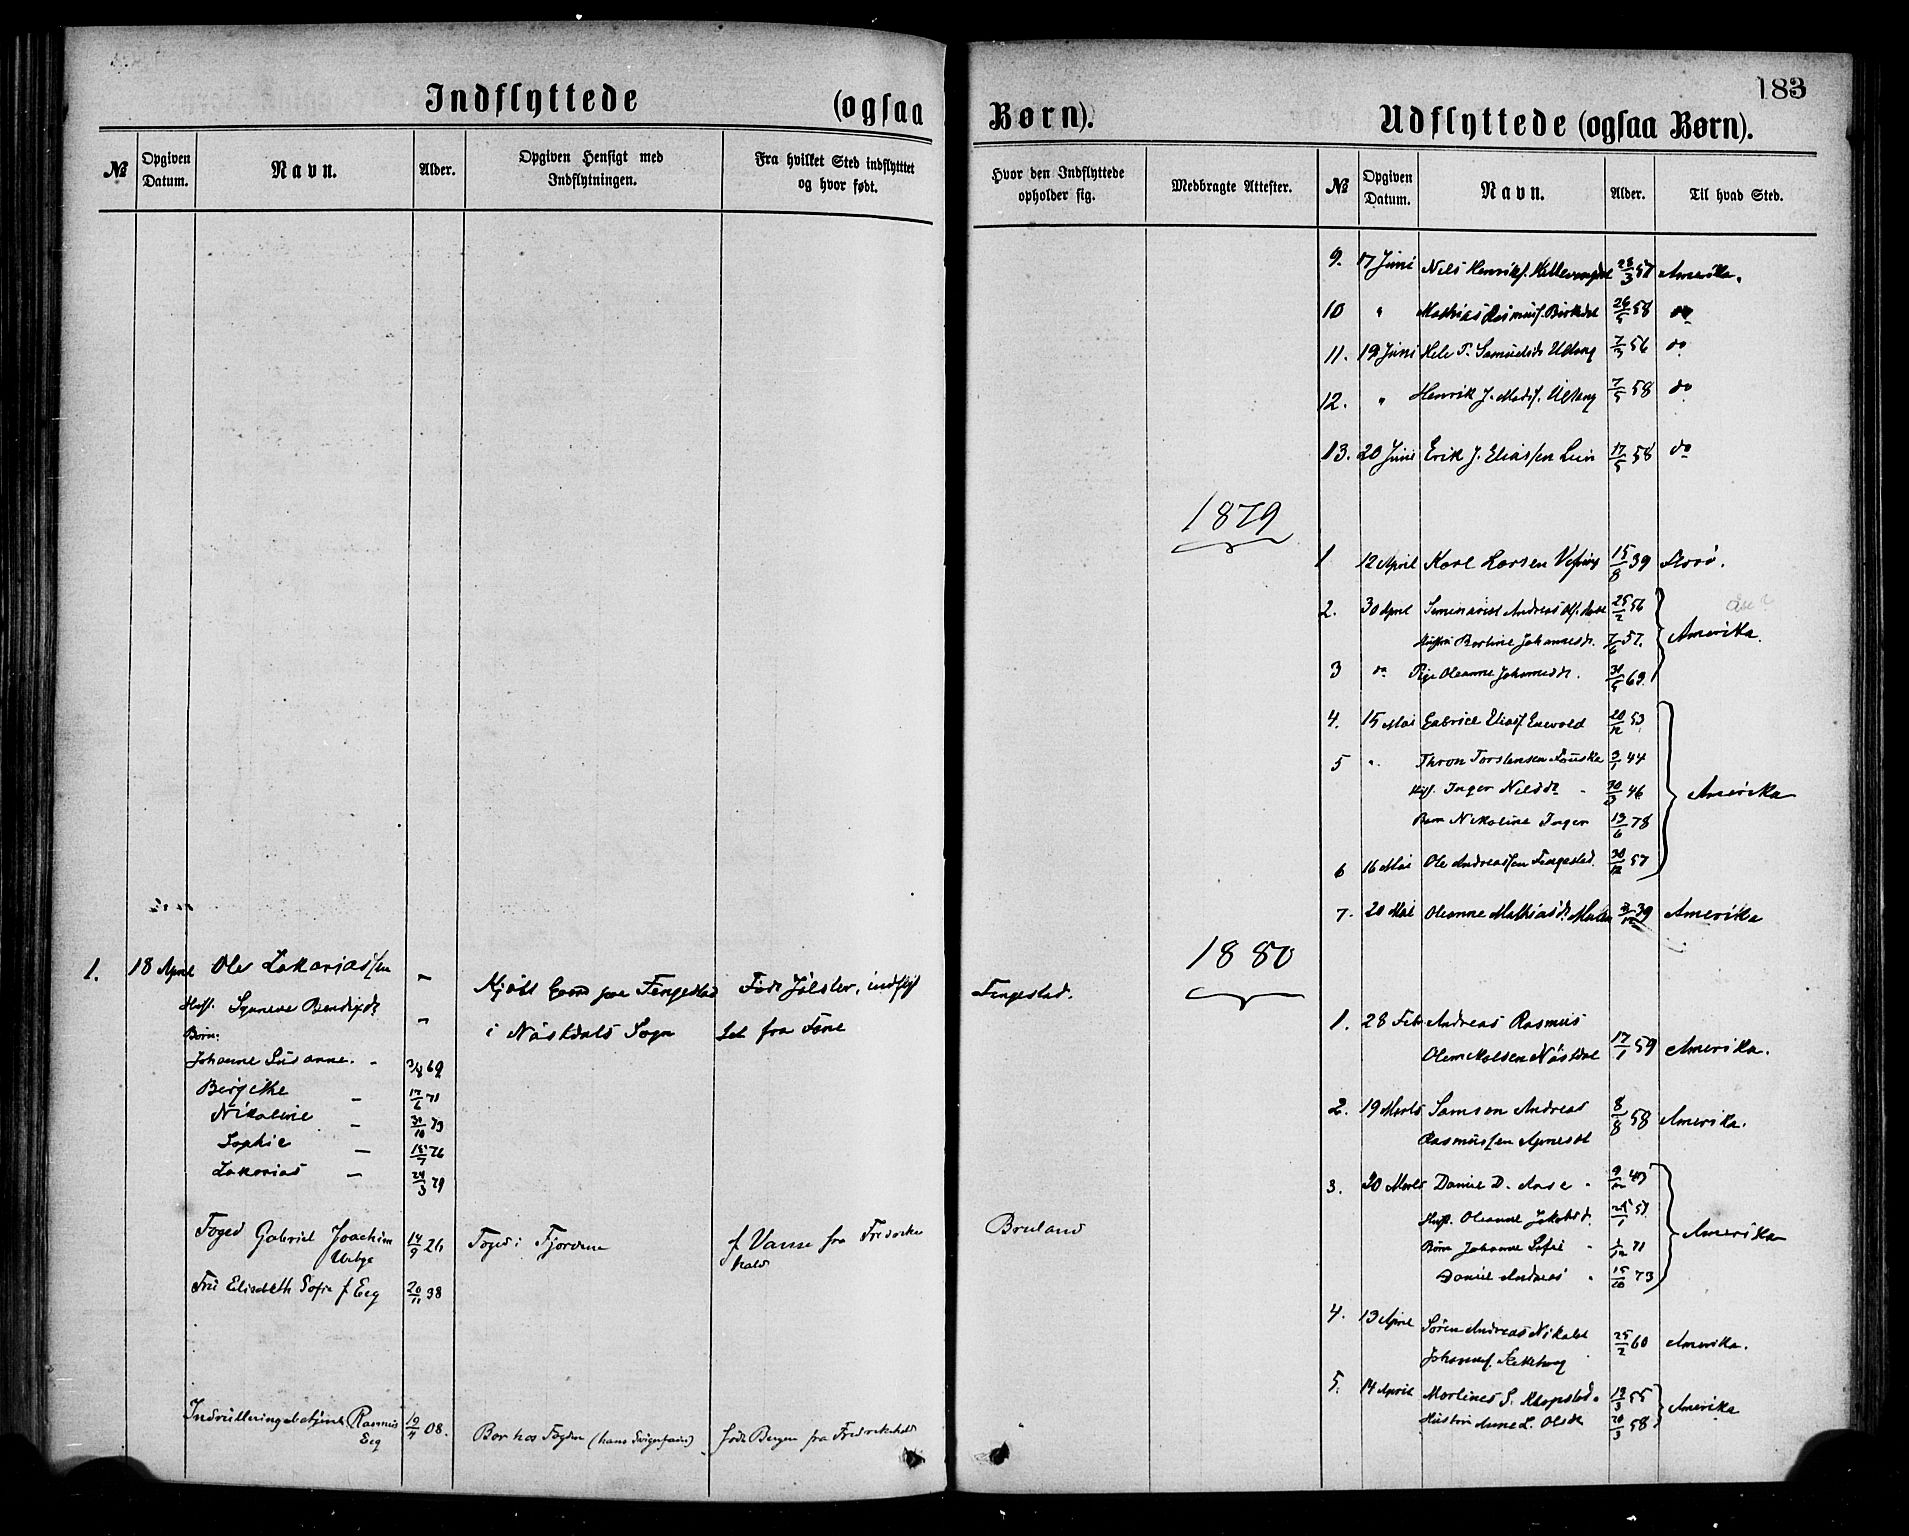 183
Indflyttede (ogsaa Børn).
№
Opgiven Datum.
Navn.
Alder.
Opgiven Hensigt med Indflytningen.
Fra hvilket Sted indflyttet og hvor født.
Hvor den Indflyttede opholder sig.
Medbragte Attester.
1. 18 April Ole Zakariassen — Kjøbt Gaard paa Fengestad Født Jølster, indflyt Fengestad.
Hust. Synneve Bendixdr — i Nøstdals Sogn tet fra Førne
Børn:
Johanne Susanne. 3/8 69
Bergithe — 17/6 71
Nikoline — 30/10 73
Sophie — 15/7 76
Zakarias — 24/3 79
Foged Gabriel Joachim 14/9 26 Foged i Fjordene f. Vanse fra Frederiks Bruland
hald
Fru Elisabeth Sofie f Eeg 20/11 38
Indrulleringsbetjent Rasmus 19/4 08. Bor hos Fogden (hans Svigersøn) født Bergen fra Frederikshald
Eeg
Udflyttede (ogsaa Børn).
№
Opgiven Datum.
Navn.
Alder.
Til hvad Sted.
9. 17 Juni Nels Henriks. 28/3 57 Amerika.
10 " Mathias Rasmus. Birkedal 26/5 58 do
11. 19 Juni T. Samuelsdr Ullang 7/3 56 do
12. " Henrik J. Mads. Ullang 7/5 58 do
13. 20 Juni Erik J. Eliassen Lien 17/5 58 do
1879
1 12 April Karl Larsen 15/8 39 Florø.
2. 30 April Seminarist Andreas Ols. 25/2 56 Amerika.
Hustru Bertine Johannesdr. 7/6 57.
3 do Pige Oleanne Johannesdr. 30/5 69.
4. 15 Mai Gabriel Elias. Enevold 20/12 53
5 " Thron Torstensen Fauske 3/1 44 Amerika
Hust. Inger Nilsdr 30/8 46
Barn Nikoline Inger 13/6 78
6 16 Mai Ole Andreassen Fengestad. 30/12 57
7. 20 Mai Oleanne Mathiasdr. 39 Amerika
1880
1. 28 Feb Andreas Rasmus
Olem Nøstdal 17/1 59 Amerika.
2. 19 Marts Samson Andreas 8/8 58 Amerika.
Rasmussen
3. 30 Marts Daniel D. Aase
Hust. Oleanne Jakobsd. Amerika
Børn Johanne Sofie 71
Daniel Andreas 15/10 73
4. 13 April Søren Andreas Nikolai 25/2 60 Amerika.
Johannes.
5. 14 April Martines S. Klopstad 19/3 55 Amerika
Hustru Anne L. Olsdr 20/3 58